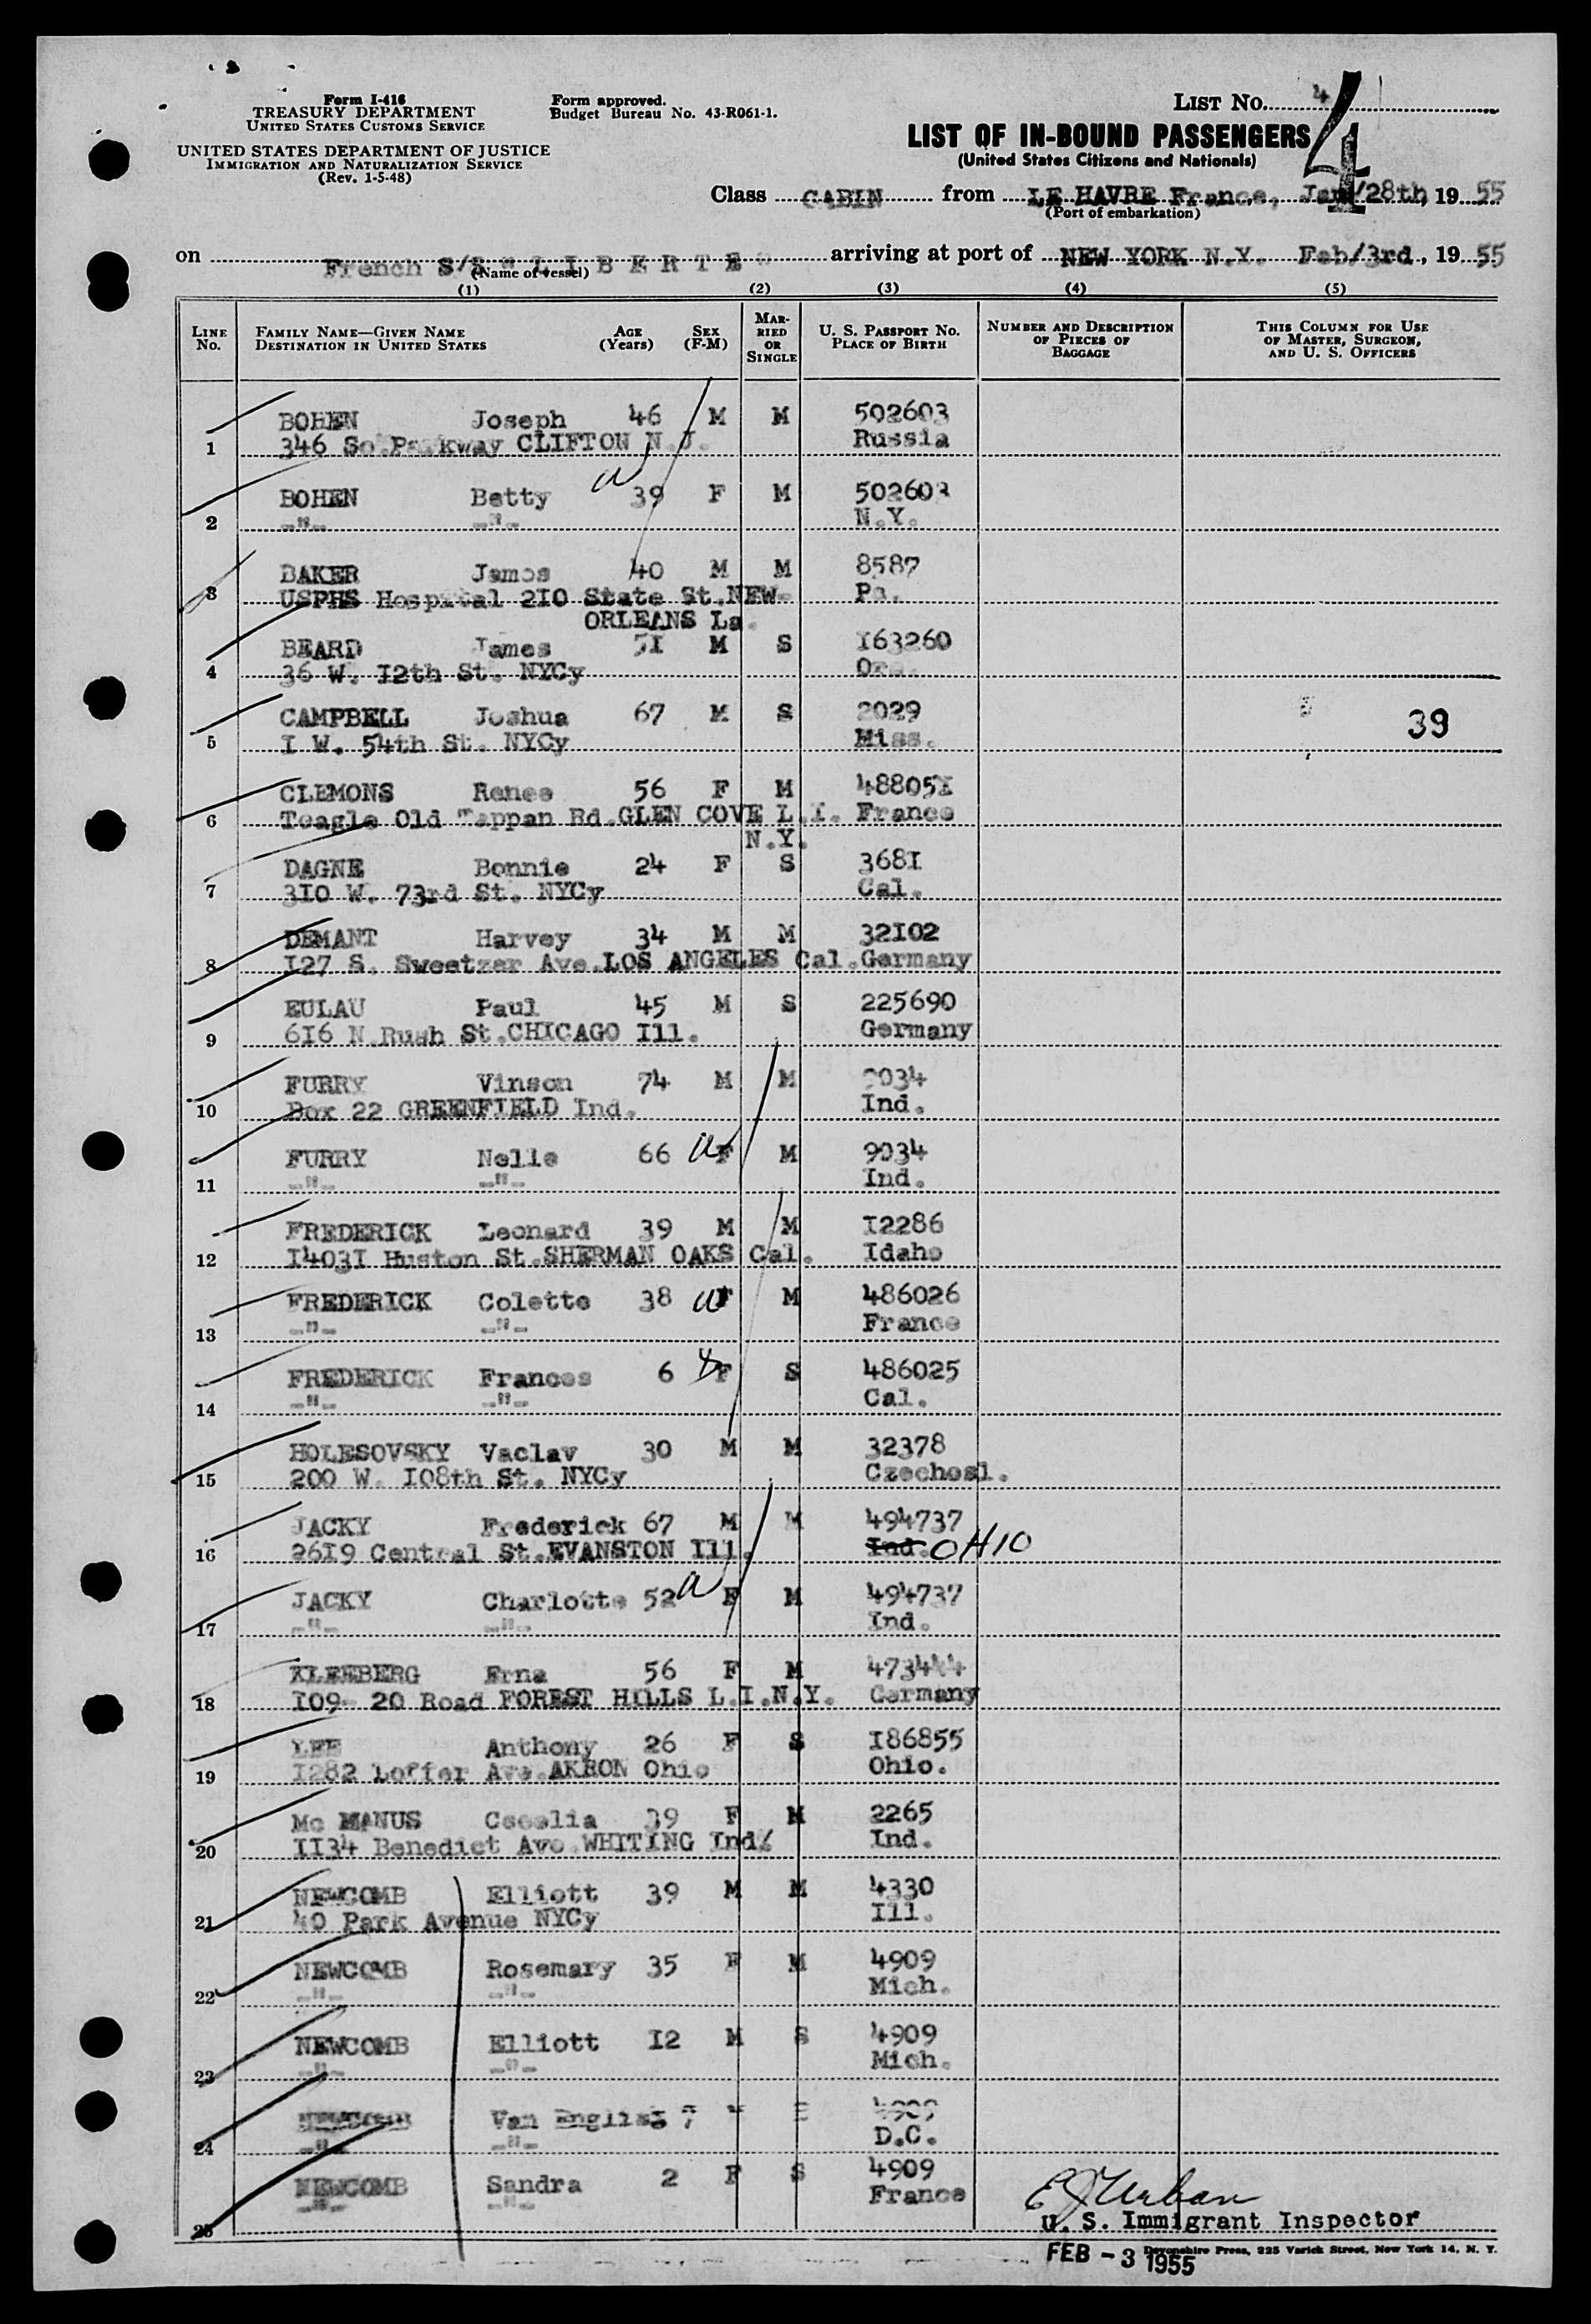 Form I-416
TREASURY DEPARTMENT
UNITED STATES CUSTOMS SERVICE
UNITED STATES DEPARTMENT OF JUSTICE
IMMIGRATION AND NATURALIZATION SERVICE
(Rev. 1-5-48)
Form approved.
Budget Bureau No. 43-R061-1.
LIST NO. 4
4
LIST OF IN-BOUND PASSENGERS
(United States Citizens and Nationals)
Class CABIN from LE HAVRE France, Jan/28th, 1955
(Port of embarkation)
on French S/S "LIBERTE" arriving at port of NEW YORK N.Y. Feb/3rd, 1955
(Name of vessel)
(1) (2) (3) (4) (5)
LINE No. FAMILY NAME—GIVEN NAME DESTINATION IN UNITED STATES AGE (Years) SEX (F-M) MARRIED OR SINGLE U. S. PASSPORT NO. PLACE OF BIRTH NUMBER AND DESCRIPTION OF PIECES OF BAGGAGE THIS COLUMN FOR USE OF MASTER, SURGEON, AND U. S. OFFICERS
BOHEN Joseph 46 M M 502603
1 346 So.Parkway CLIFTON N.J. Russia
BOHEN Betty 39 F M 502603
2 -"- -"- N.Y.
BAKER James 40 M M 8587
3 USPHS Hospital 210 State St.NEW Pa.
ORLEANS La.
BEARD James 51 M S 163260
4 36 W. 12th St. NYCy Ore.
CAMPBELL Joshua 67 M S 2029
5 1 W. 54th St. NYCy Miss. 39
CLEMONS Renee 56 F M 488051
6 Teagle Old Tappan Rd.GLEN COVE L.I. France
N.Y.
DAGNE Bonnie 24 F S 3681
7 310 W. 73rd St. NYCy Cal.
DEMANT Harvey 34 M M 32102
8 127 S. Sweetzer Ave.LOS ANGELES Cal. Germany
EULAU Paul 45 M S 225690
9 616 N.Rush St.CHICAGO Ill. Germany
FURRY Vinson 74 M M 9034
10 Box 22 GREENFIELD Ind. Ind.
FURRY Nelle 66 F M 9034
11 -"- -"- Ind.
FREDERICK Leonard 39 M M 12286
12 14031 Huston St.SHERMAN OAKS Cal. Idaho
FREDERICK Colette 38 F M 486026
13 -"- -"- France
FREDERICK Frances 6 F S 486025
14 -"- -"- Cal.
HOLESOVSKY Vaclav 30 M M 32378
15 200 W. 108th St. NYCy Czechosl.
JACKY Frederick 67 M M 494737
16 2619 Central St.EVANSTON Ill. Ind. OHIO
JACKY Charlotte 52 F M 494737
17 -"- -"- Ind.
KLEEBERG Erna 56 F M 473444
18 109- 20 Road FOREST HILLS L.I.N.Y. Germany
LEE Anthony 26 F S 186855
19 1282 Loffer Ave.AKRON Ohio Ohio.
Mc MANUS Cecelia 39 F M 2265
20 1134 Benedict Ave.WHITING Ind. Ind.
NEWCOMB Elliott 39 M M 4330
21 40 Park Avenue NYCy Ill.
NEWCOMB Rosemary 35 F M 4909
22 -"- -"- Mich.
NEWCOMB Elliott 12 M S 4909
23 -"- -"- Mich.
NEWCOMB Van 7 4909
24 -"- -"- D.C.
NEWCOMB Sandra 2 F S 4909
25 -"- -"- France
E J Urban
U. S. Immigrant Inspector
FEB - 3 1955
Devonshire Press, 225 Varick Street, New York 14, N. Y.